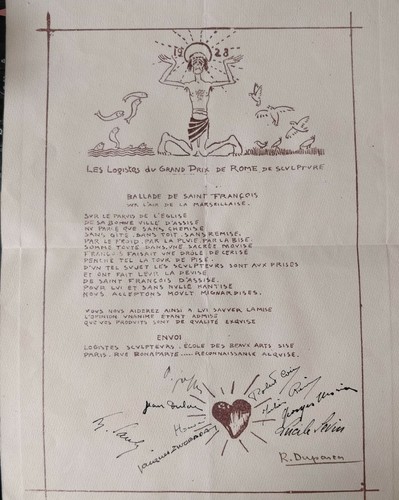 1928
LES LOGISTES DU GRAND PRIX DE ROME DE SCULPTURE
BALLADE DE SAINT FRANÇOIS
SUR L'AIR DE LA MARSEILLAISE.
SUR LE PARVIS DE L'EGLISE
DE SA BONNE VILLE D'ASSISE
NE PORTE QUE SANS CHEMISE
SANS GITE. SANS TOIT. SANS REMISE.
PAR LE FROID. PAR LA PLUIE. PAR LA BISE.
SOMME TOUTE DANS UNE SACRÉE MOUISE
FRANÇOIS FAISAIT UNE DROLE DE CERISE
PENCHÉ TEL LA TOUR DE PISE.
D'UN TEL SUJET LES SCULPTEURS SONT AUX PRISES
ET ONT FAIT LEUR LA DEVISE
DE SAINT FRANÇOIS D'ASSISE.
POUR LUI ET SANS NULLE HANTISE
NOUS ACCEPTONS MOULT MIGNARDISES.
VOUS NOUS AIDEREZ AINSI A LUI SAUVER LA MISE
L'OPINION UNANIME ETANT ADMISE
QUE VOS PRODUITS SONT DE QUALITÉ EXQUISE
ENVOI
LOGISTES SCULPTEURS. ÉCOLE DES BEAUX ARTS SISE
PARIS. RUE BONAPARTE..... RECONNAISSANCE ACQUISE.
Jean
Georges
Lucile
Jacques
R. Duparcq